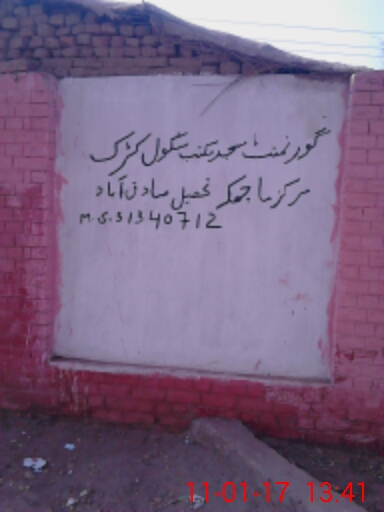 گورنمنٹ مسجد مکتب سکول کٹرک
مرکز ماچھکہ تحصیل صادق آباد
M.S.31340712
11-01-17 13:41